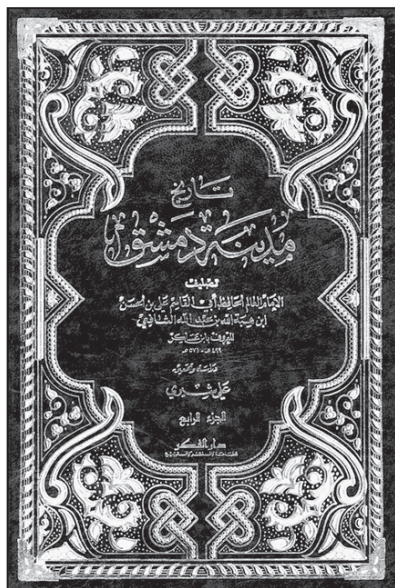 تاريخ
مدينة دمشق
تصنيف
الإمام العالم الحافظ أبي القاسم علي بن الحسن
ابن هبة الله بن عبد الله الشافعي
المعروف بابن عساكر
٤٩٩ هـ - ٥٧١ هـ
دراسة وتحقيق
علي شيري
الجزء الرابع
دار الفكر
للطباعة والنشر والتوزيع